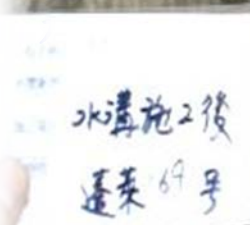 水溝施工後
蓬萊69号